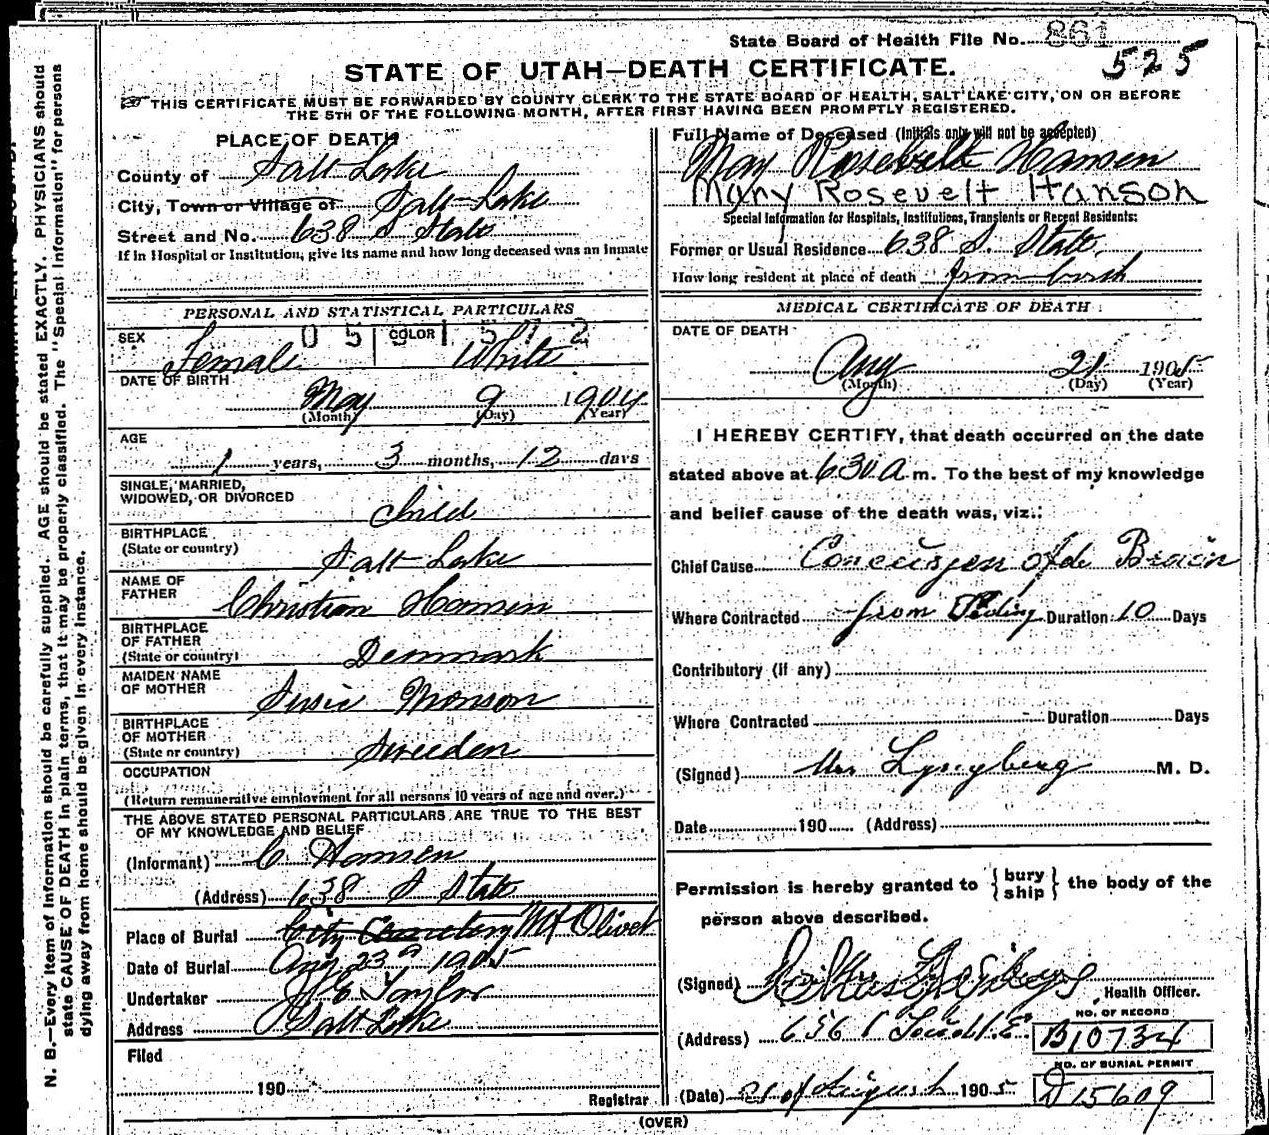 State Board of Health File No. 861
525
STATE OF UTAH—DEATH CERTIFICATE.
THIS CERTIFICATE MUST BE FORWARDED BY COUNTY CLERK TO THE STATE BOARD OF HEALTH, SALT LAKE CITY, ON OR BEFORE
THE 5TH OF THE FOLLOWING MONTH, AFTER FIRST HAVING BEEN PROMPTLY REGISTERED.
N. B.—Every item of information should be carefully supplied. AGE should be stated EXACTLY. PHYSICIANS should
state CAUSE OF DEATH in plain terms, that it may be properly classified. The "Special Information" for persons
dying away from home should be given in every instance.
PLACE OF DEATH
County of Salt Lake
City, Town or Village of Salt Lake
Street and No. 638 S State
If in Hospital or Institution, give its name and how long deceased was an inmate
PERSONAL AND STATISTICAL PARTICULARS
SEX Female COLOR White
DATE OF BIRTH
May 9 1904
(Month) (Day) (Year)
AGE
1 years, 3 months, 12 days
SINGLE, MARRIED,
WIDOWED, OR DIVORCED
Child
BIRTHPLACE
(State or country) Salt Lake
NAME OF
FATHER Christian Hansen
BIRTHPLACE
OF FATHER
(State or country) Denmark
MAIDEN NAME
OF MOTHER Susie Monson
BIRTHPLACE
OF MOTHER
(State or country) Sweeden
OCCUPATION
(Return remunerative employment for all persons 10 years of age and over.)
THE ABOVE STATED PERSONAL PARTICULARS ARE TRUE TO THE BEST
OF MY KNOWLEDGE AND BELIEF
(Informant) C Hansen
(Address) 638 S State
Place of Burial City Cemetery Mt Olivet
Date of Burial Aug 23 1905
Undertaker Taylor
Address Salt Lake
Filed
190
Registrar
Full Name of Deceased (Initials only will not be accepted)
May Rosevelt Hansen
Mary Rosevelt Hanson
Special Information for Hospitals, Institutions, Transients or Recent Residents:
Former or Usual Residence 638 S. State
How long resident at place of death from birth
MEDICAL CERTIFICATE OF DEATH
DATE OF DEATH
Aug 21 1905
(Month) (Day) (Year)
I HEREBY CERTIFY, that death occurred on the date
stated above at 630 a m. To the best of my knowledge
and belief cause of the death was, viz.:
Chief Cause Brain
Where Contracted from Duration 10 Days
Contributory (if any)
Where Contracted Duration Days
(Signed) M. D.
Date 190 (Address)
Permission is hereby granted to { bury ship } the body of the
person above described.
(Signed) Health Officer.
(Address) 656
NO. OF RECORD
B10734
NO. OF BURIAL PERMIT
D15609
(Date) 21 of August 1905
(OVER)